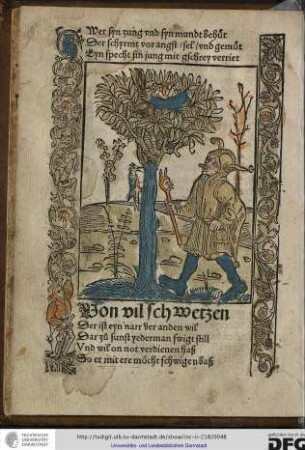 Wer syn zung vnd syn mundt behüt
Der schyrmt vor angst / sel / vnd gemüt
Eyn specht sin jung mit gschrey verriet
Von vil schwetzen
Der ist eyn narr der anden wil
Dar zů sunst yederman swigt still
Vnd wil on not verdienen haß
So er mit ere möcht schwigen baß
http://tudigit.ulb.tu-darmstadt.de/show/inc-ii-218/0046
Universitäts- und Landesbibliothek Darmstadt
TECHNISCHE
UNIVERSITÄT
DARMSTADT
gefördert durch die
DFG